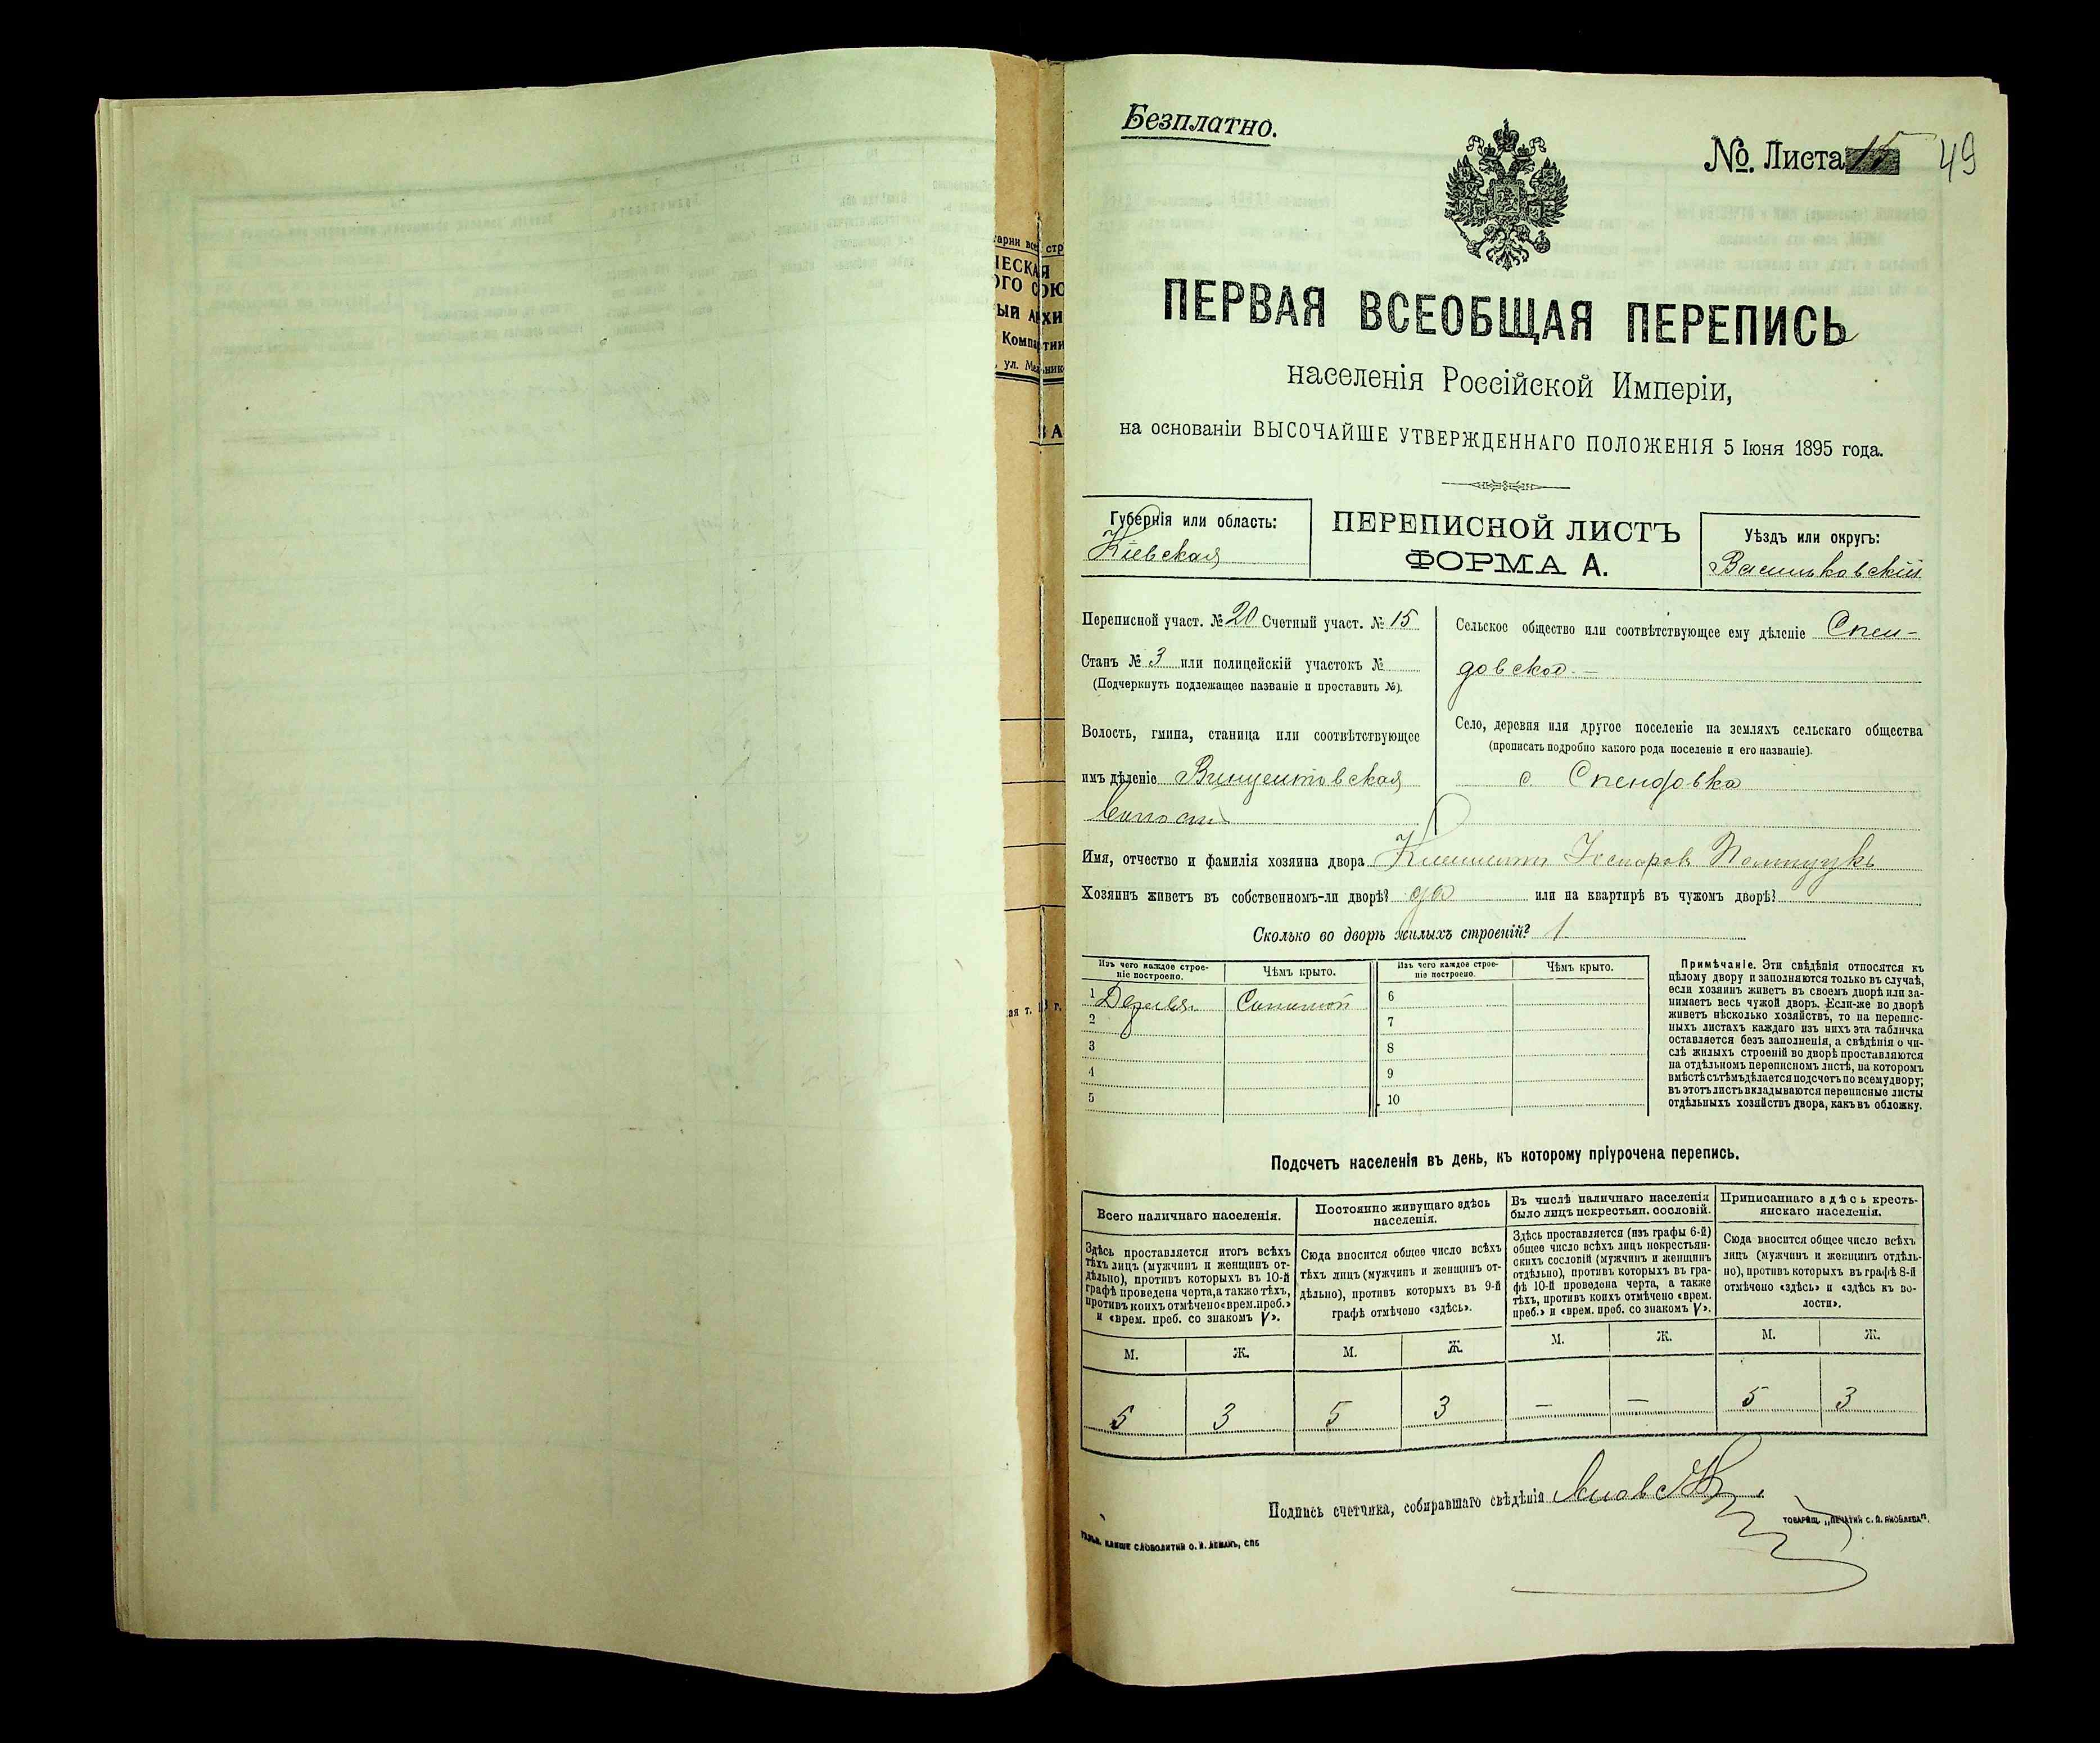 Безплатно.
№. Листа 15 49
ПЕРВАЯ ВСЕОБЩАЯ ПЕРЕПИСЬ
населенія Россійской Имперіи,
на основаніи ВЫСОЧАЙШЕ УТВЕРЖДЕННАГО ПОЛОЖЕНІЯ 5 Іюня 1895 года.
Губернія или область:
Кіевская
ПЕРЕПИСНОЙ ЛИСТЪ
ФОРМА А.
Уѣздъ или округъ:
Васильковскій
Переписной участ. № 20 Счетный участ. № 15
Станъ № 3 или полицейскій участокъ №
(Подчеркнуть подлежащее названіе и проставить №).
Волость, гмина, станица или соотвѣтствующее
имъ дѣленіе Винцентовская
волость
Сельское общество или соотвѣтствующее ему дѣленіе Спен-
довское
Село, деревня или другое поселеніе на земляхъ сельскаго общества
(прописать подробно какого рода поселеніе и его названіе).
с. Спендовка
Имя, отчество и фамилія хозяина двора
Хозяинъ живетъ въ собственномъ-ли дворѣ? да или на квартирѣ въ чужомъ дворѣ?
Сколько во дворѣ жилыхъ строеній? 1
Изъ чего каждое строе-
ніе построено.
Чѣмъ крыто.
Изъ чего каждое строе-
ніе построено.
Чѣмъ крыто.
1 Дерев. Соломой
2
3
4
5
6
7
8
9
10
Примѣчаніе. Эти свѣдѣнія относятся къ
цѣлому двору и заполняются только въ случаѣ,
если хозяинъ живетъ въ своемъ дворѣ или за-
нимаетъ весь чужой дворъ. Если-же во дворѣ
живетъ нѣсколько хозяйствъ, то на перепис-
ныхъ листахъ каждаго изъ нихъ эта табличка
оставляется безъ заполненія, а свѣдѣнія о чи-
слѣ жилыхъ строеній во дворѣ проставляются
на отдѣльномъ переписномъ листѣ, на которомъ
вмѣстѣ съ тѣмъ дѣлается подсчетъ по всему двору;
въ этотъ листъ вкладываются переписные листы
отдѣльныхъ хозяйствъ двора, какъ въ обложку.
Подсчетъ населенія въ день, къ которому пріурочена перепись.
Всего наличнаго населенія.
Постоянно живущаго здѣсь
населенія.
Въ числѣ наличнаго населенія
было лицъ некрестьян. сословій.
Приписаннаго здѣсь кресть-
янскаго населенія.
Здѣсь проставляется итогъ всѣхъ
тѣхъ лицъ (мужчинъ и женщинъ от-
дѣльно), противъ которыхъ въ 10-й
графѣ проведена черта, а также тѣхъ,
противъ коихъ отмѣчено «врем. преб.»
и «врем. преб. со знакомъ V».
Сюда вносится общее число всѣхъ
тѣхъ лицъ (мужчинъ и женщинъ от-
дѣльно), противъ которыхъ въ 9-й
графѣ отмѣчено «здѣсь».
Здѣсь проставляется (изъ графы 6-й)
общее число всѣхъ лицъ некрестьян-
скихъ сословій (мужчинъ и женщинъ
отдѣльно), противъ которыхъ въ гра-
фѣ 10-й проведена черта, а также
тѣхъ, противъ коихъ отмѣчено «врем.
преб.» и «врем. преб. со знакомъ V».
Сюда вносится общее число всѣхъ
лицъ (мужчинъ и женщинъ отдѣль-
но), противъ которыхъ въ графѣ 8-й
отмѣчено «здѣсь» и «здѣсь къ во-
лости».
М. Ж. М. Ж. М. Ж. М. Ж.
5 3 5 3 — — 5 3
Подпись счетчика, собиравшаго свѣдѣнія
ТОВАРИЩ. „ПЕЧАТНИ С. П. ЯКОВЛЕВА".
КЛИШЕ СЛОВОЛИТНИ О. И. ЛЕМАНЪ, СПБ